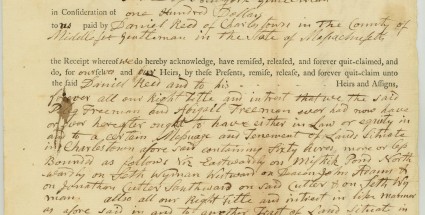 in Consideration of one Hundred Dollars
to us paid by Daniel Reed of Charlestown in the County of
Middlesex Gentleman in the State of Massachusetts
the Receipt whereof we do hereby acknowledge, have remised, released, and forever quit-claimed, and
do, for ourselves and our Heirs, by these Presents, remise, release, and forever quit-claim unto
the said Daniel Reed and to his Heirs and Assigns,
forever all our Right Title and intrest that we the said
Freeman and Freeman ever did now have
or ever hereafter ought to have either in Law or equity in
and to a certain Messuage and Tenement & Lands Situate
in Charlestown afore Said containing Sixty Acres, more or less
Bounded as follows Viz Eastwardly on Mistick Pond North
wardly on Seth Wyman Westward on Deacon John Adams &
on Jonathan Cutler Southward on said Cutler & on Seth Wy
man. also all our Right Title and intrest in like manner
as afore said in and to another tract of Land Situate in